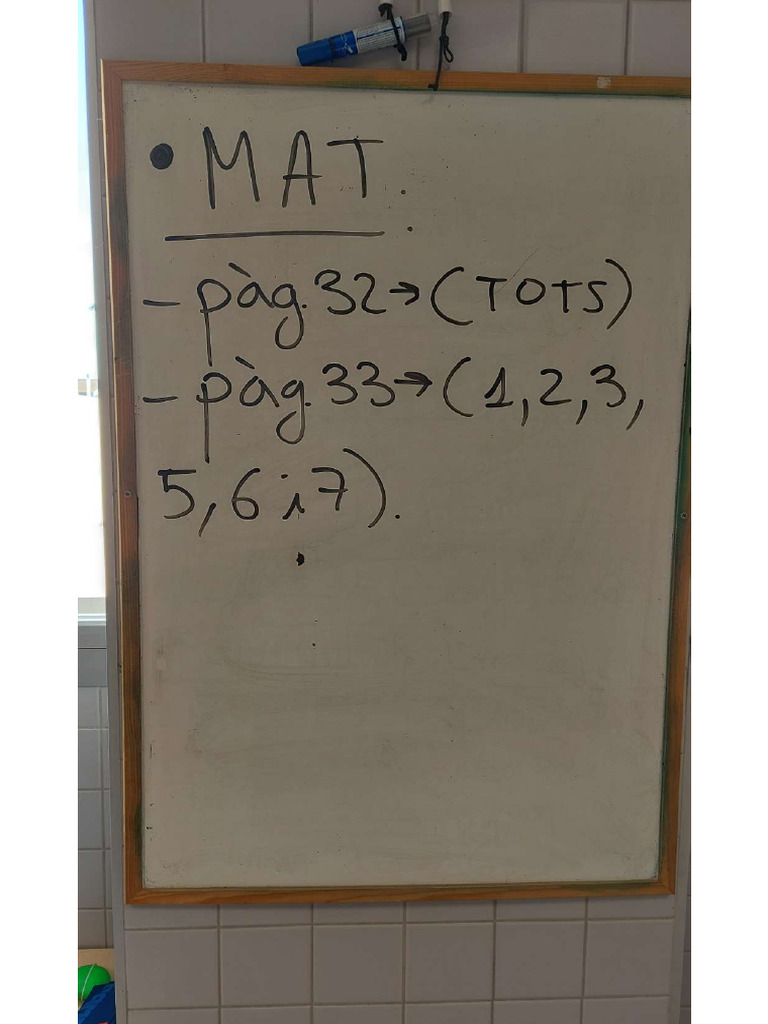 • MAT.
- pàg. 32 → (TOTS)
- pàg. 33 → (1, 2, 3,
5, 6 i 7).